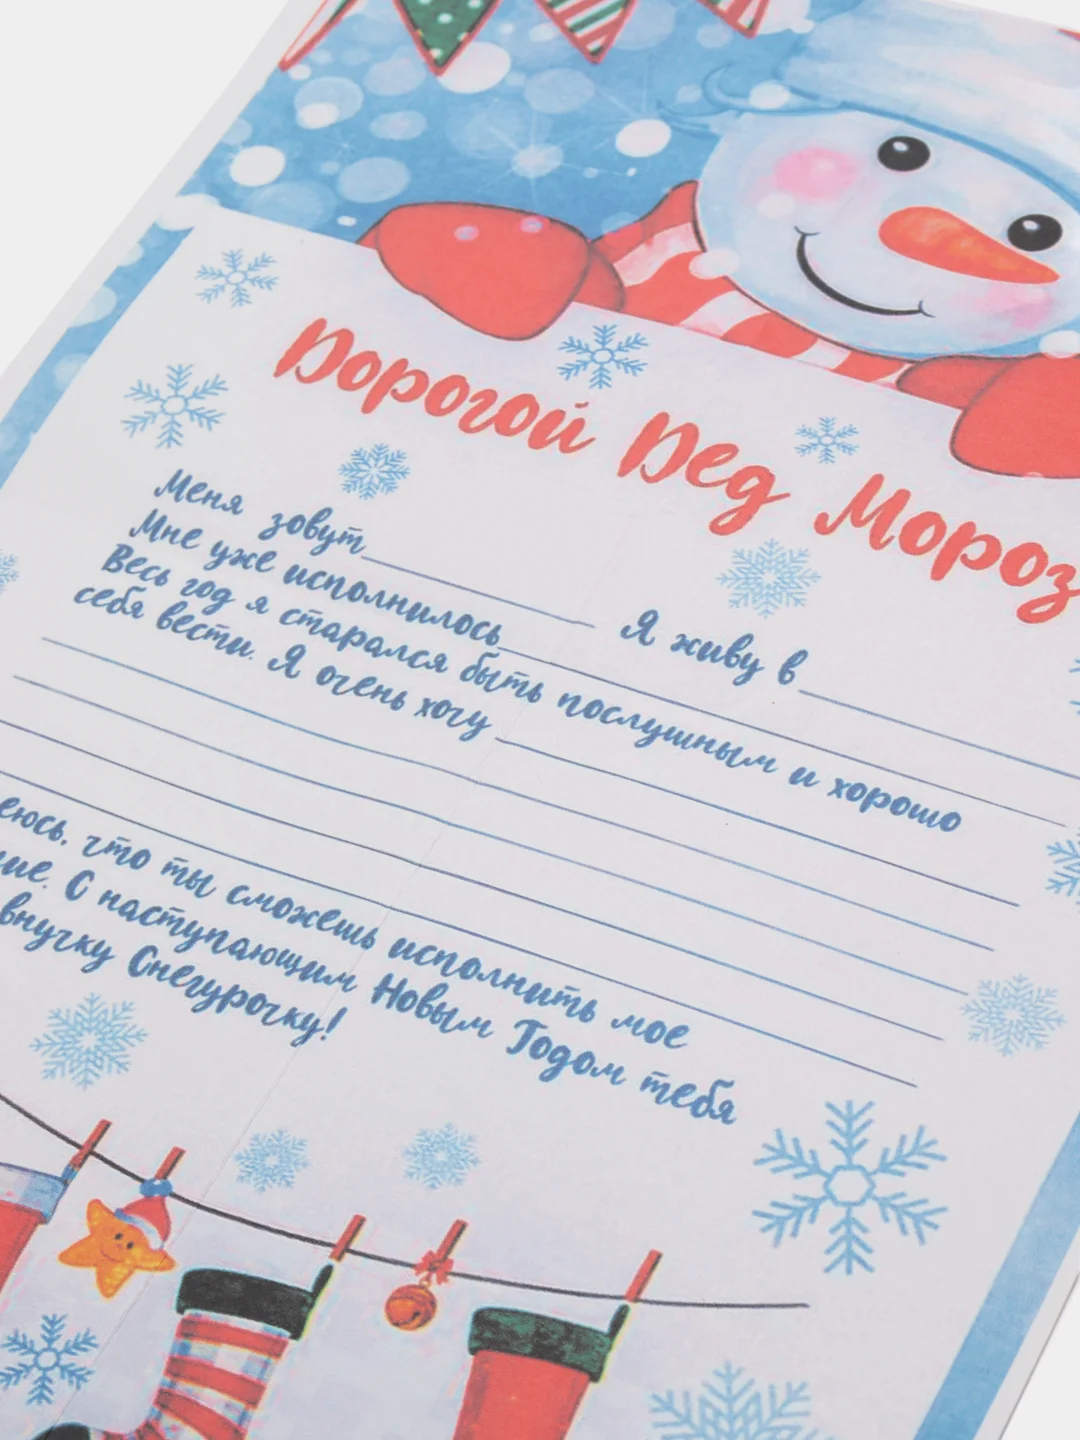 Дорогой Дед Мороз
Меня зовут
Мне уже исполнилось Я живу в
Весь год я старался быть послушным и хорошо
себя вести. Я очень хочу
еюсь, что ты сможешь исполнить мое
ние. С наступающим Новым Годом тебя
внучку Снегурочку!